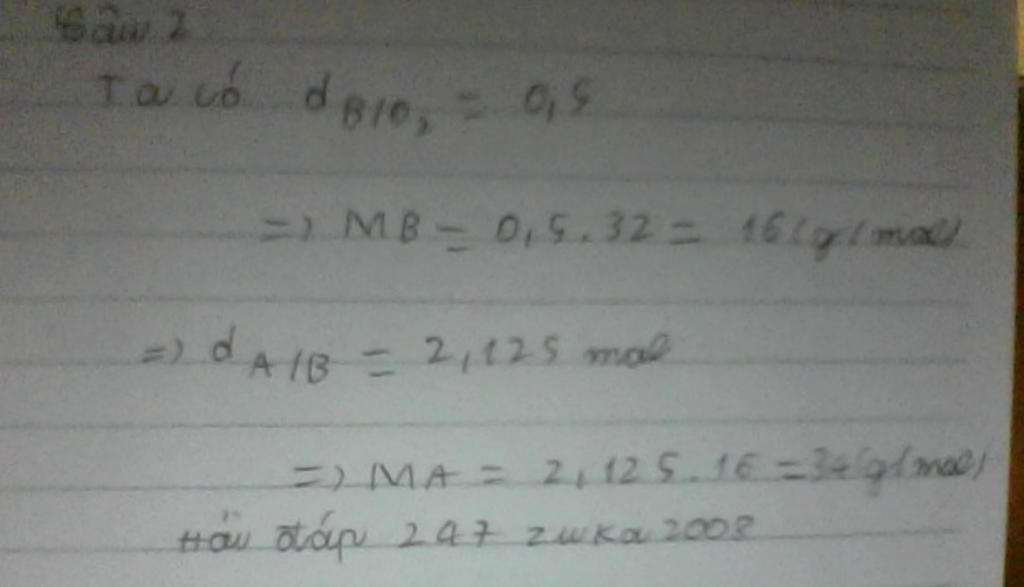 Câu 2
Ta có d B/O₂ = 0,5
=> MB = 0,5.32 = 16(g/mol)
=> d A/B = 2,125 mol
=> MA = 2,125.16 = 34(g/mol)
Hỏi đáp 247 zuka2008